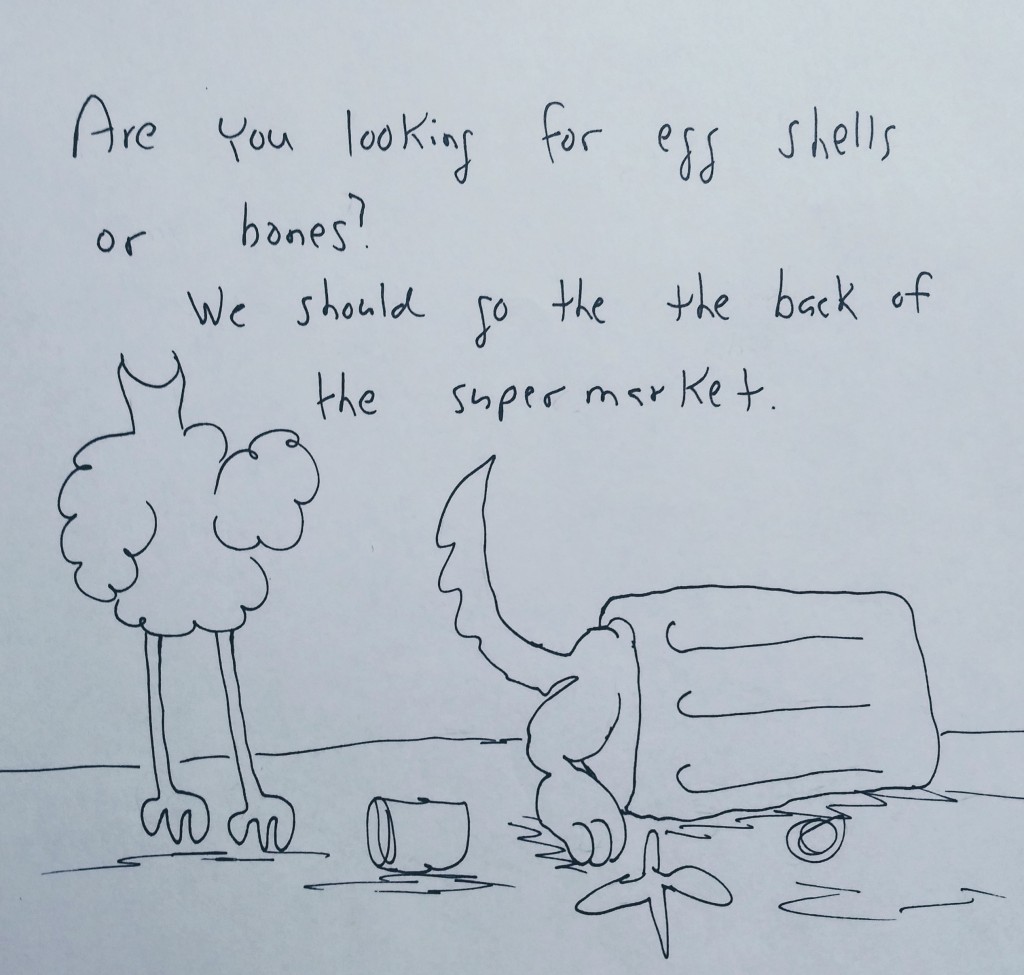 Are you looking for egg shells
or bones?
We should go the the back of
the supermarket.